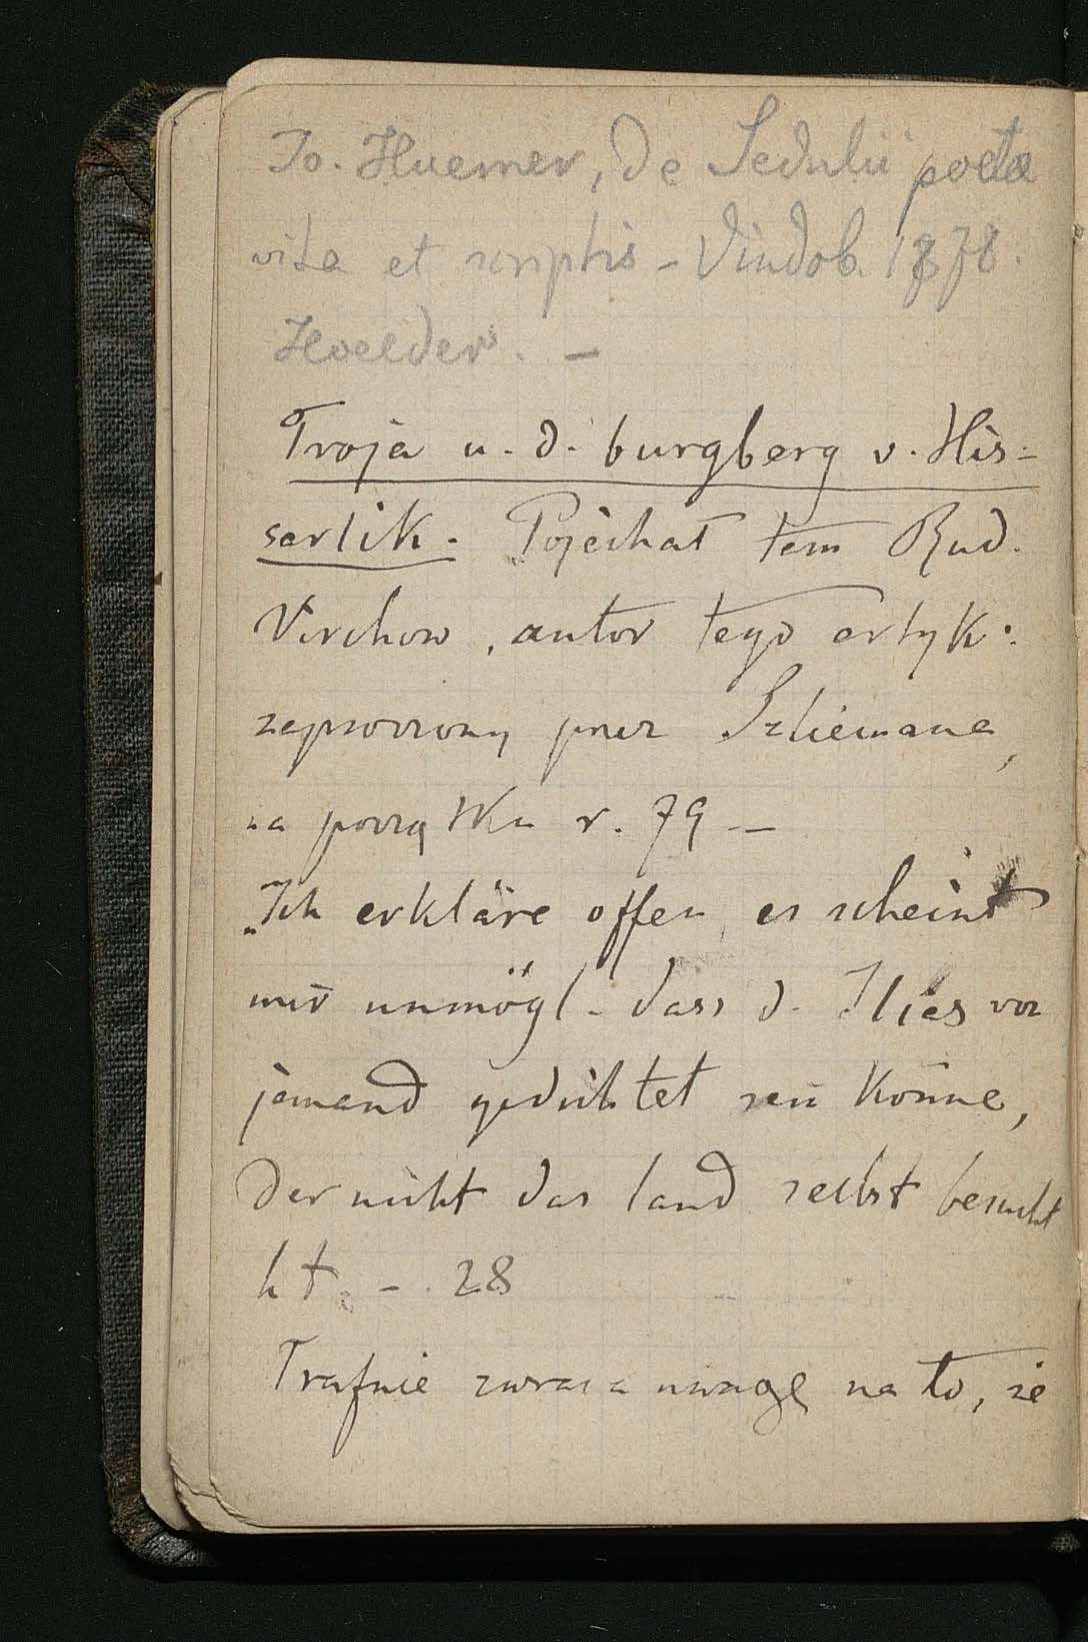 Io. Huemer, de Sedulii poetae
vita et scriptis – Vindob. 1878.
Hoelder. –
Troja u. d. burgberg v. His-
sarlik. Pojechał tam Rud.
Virchow, autor tego artyk.
zaproszony przez Szliemana,
na początku r. 79 –
„Ich erkläre offen, es scheint
mir unmögl. dass d. Ilias von
jemand gedichtet sein könne,
der nicht das land selbst besucht
ht. – 28
Trafnie zwraca uwagę na to, że